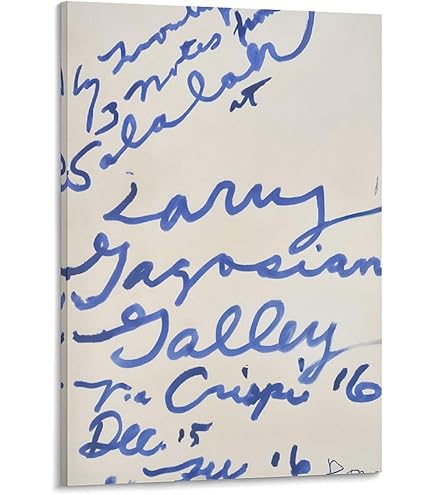 3 Notes from
Salalah
at
Larry
Gagosian
Galley
Via Crispi '16
Dec. 15
'16